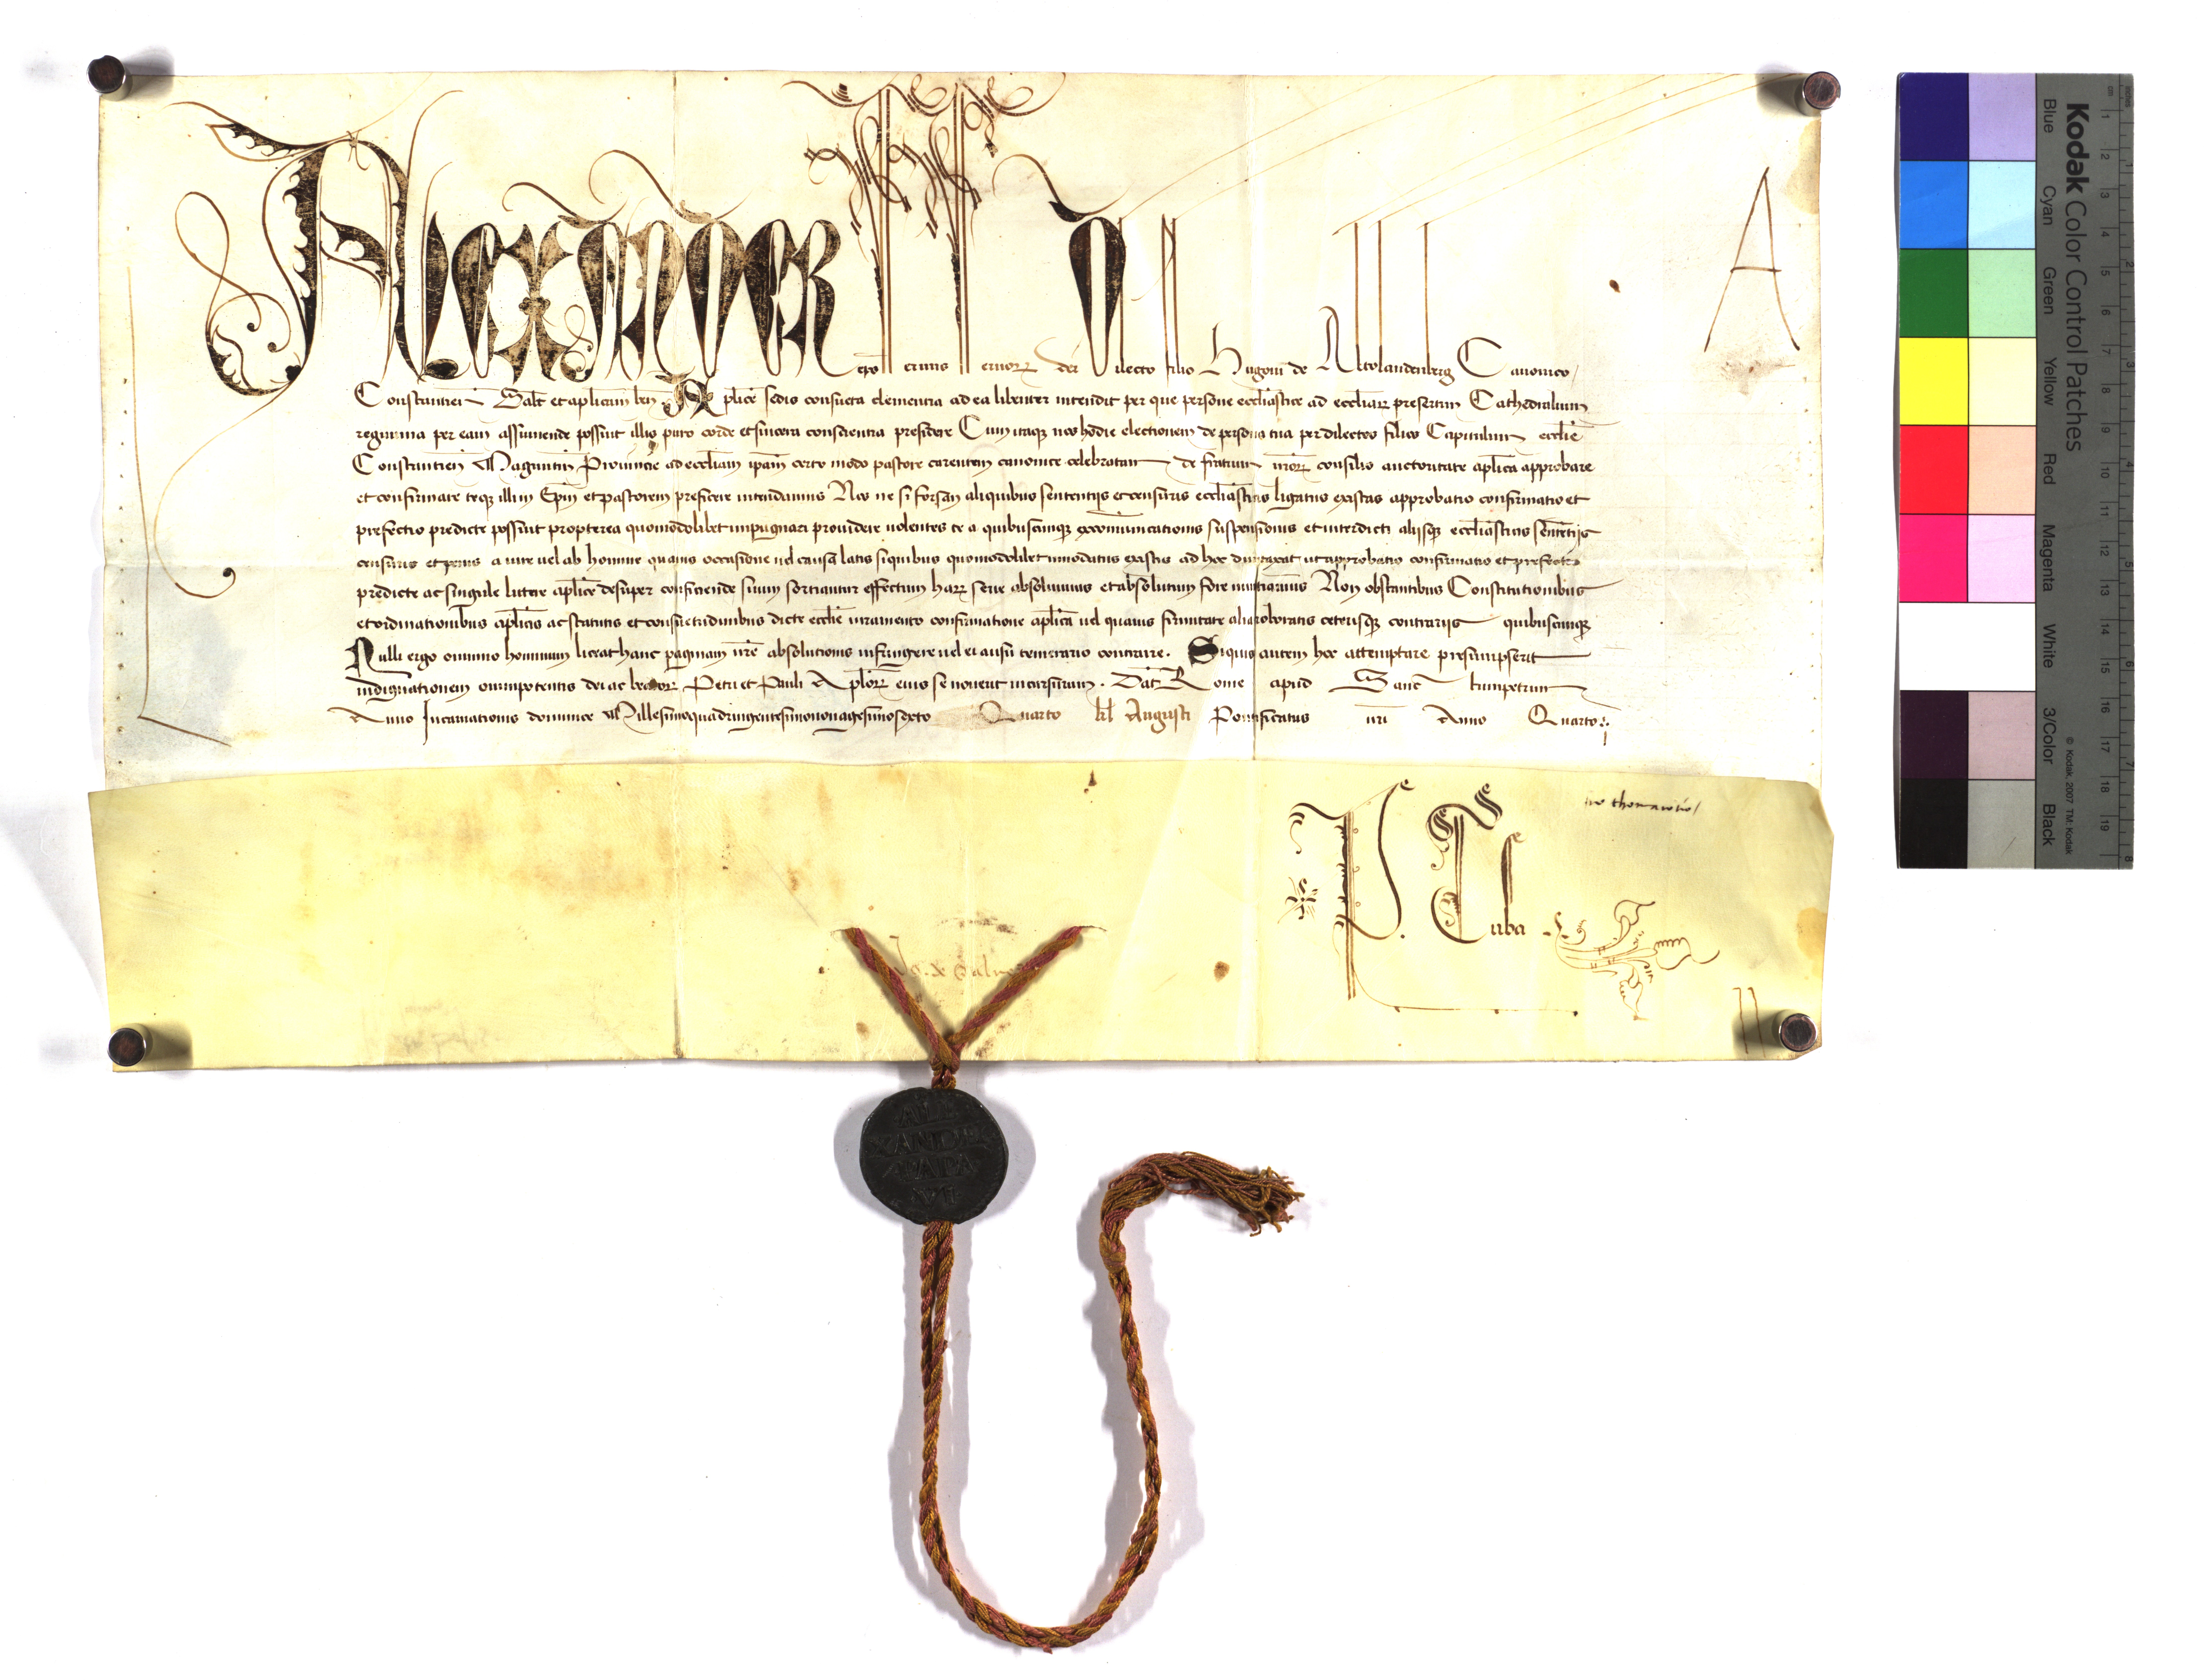 Alexander ep̄s seruus seruorꝝ dei Dilecto filio Hugoni de Altolandenberg Canonico
Constantien̄ Salt̄ et aplicam ben̄ Aplice sedis consueta clementia ad ea libenter intendit per que persone ecclīastice ad eccliarꝝ presertim Cathedralium
regimina per eam assumende possint illis puro corde et sincera conscientia presidere Cum itaqꝫ nos hodie electionem de persona tua per dilectos filios Capitulum ecclīe
Constantien̄ Maguntin̄ Prouincie ad eccliam ipam certo modo pastore carentem canonice celebratam de fratrum nrorꝝ consilio auctoritate aplica approbare
et confirmare teqꝫ illius Epm̄ et pastorem preficere intendamus Nos ne si forsan aliquibus sententijs et censuris ecclīasticis ligatus existas approbatio confirmatio et
prefectio predicte possint propterea quomodolibet impugnari prouidere uolentes te a quibuscunqꝫ excom̄unicationis suspensionis et interdicti alijsqꝫ ecclīasticis sentētijs
censuris et penis a iure uel ab homine quauis occasione uel causa latis siquibus quomodolibet innodatus existis ad hoc dumtaxat ut approbatio confirmatio et prefectio
predicte ac singule littere aplice desuper conficiende suum sortiantur effectum harꝝ serie absoluimus et absolutum fore nuntiamus Non obstantibus Constitutionibus
et ordinationibus aplicis ac statutis et consuetudinibus dicte ecclīe iuramento confirmatione aplica uel quauis firmitate alia roboratis ceterisqꝫ contrarijs quibuscunqꝫ
Nulli ergo omnino hominum liceat hanc paginam nrē absolutionis infringere uel ei ausu temerario contraire. Siquis autem hoc attemptare presumpserit
indignationem omnipotentis dei ac beatorꝝ Petri et Pauli Aplorꝝ eius se nouerit incursurum. Dat̄ Rome apud Sanctumpetrum
Anno Incarnationis dominice Millesimoquadringentesimononagesimosexto Quarto kl̄ Augusti Pontificatus nri Anno Quarto
A
P. Tuba
ALE
XANDER
PAPA
VI
Kodak Color Control Patches
Blue Cyan Green Yellow Red Magenta White 3/Color Black
© Kodak, 2007 TM: Kodak
inches
cm
1 2 3 4 5 6 7 8
1 2 3 4 5 6 7 8 9 10 11 12 13 14 15 16 17 18 19